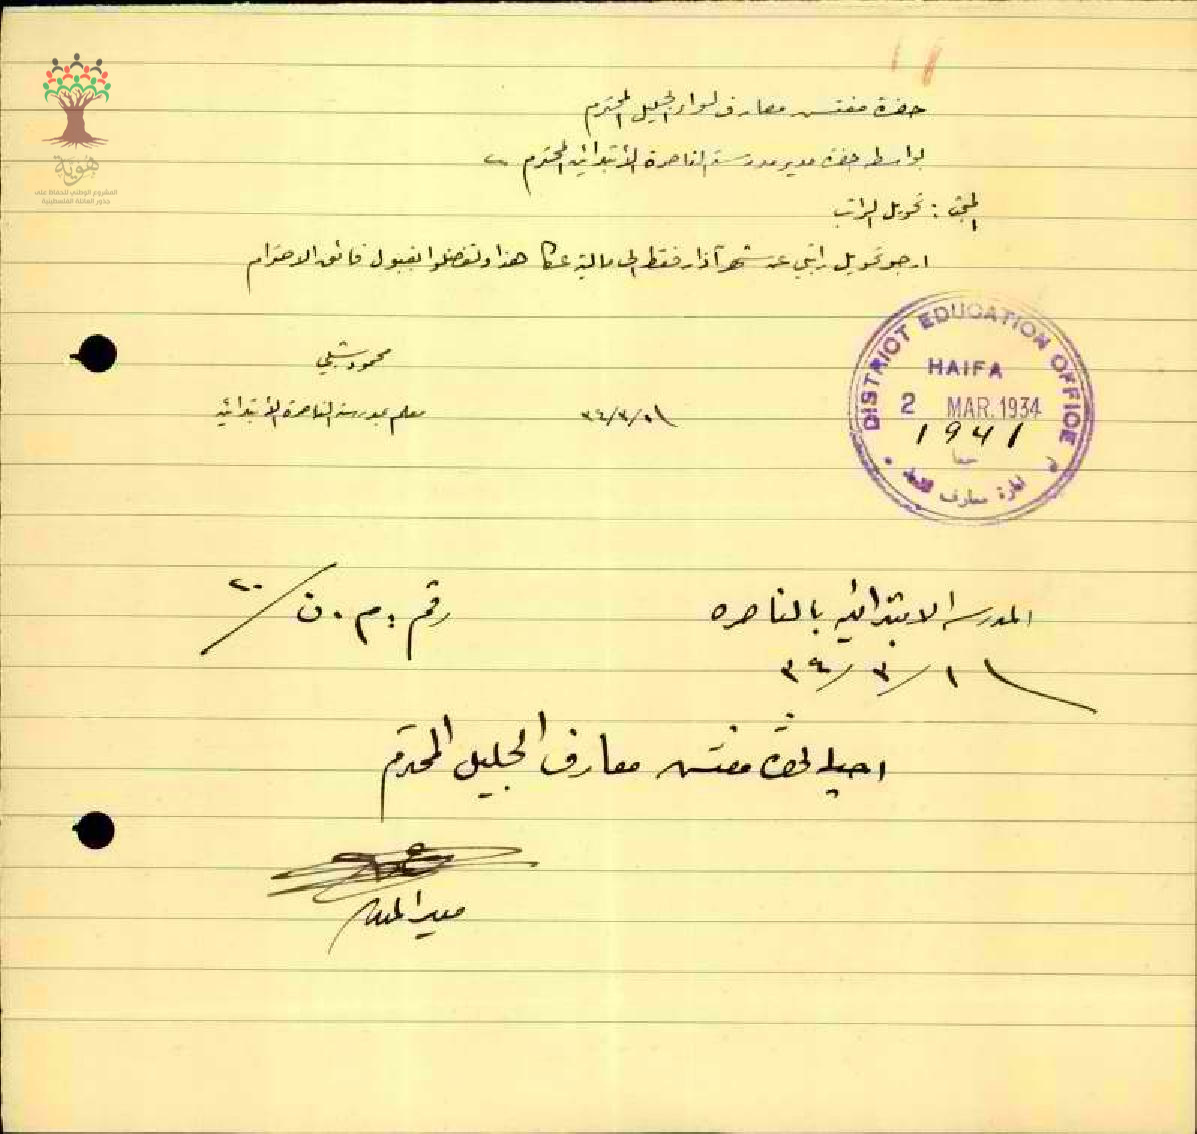 هُوِيَّة
المشروع الوطني للحفاظ على
جذور العائلة الفلسطينية
حضرة مفتش معارف لواء الجليل المحترم
بواسطة حضرة مدير مدرسة الناصرة الأبتدائية المحترم
المبحث : تحويل الراتب
ارجو تحويل راتبي عن شهر آذار فقط الى مالية عكا هذا وتفضلوا بقبول فائق الاحترام
محمود شبلي
معلم بمدرسة الناصرة الأبتدائية
٣٤/٣/١
DISTRICT EDUCATION OFFICE
HAIFA
2 MAR. 1934
1941
حيفا
ادارة معارف
المدرسة الابتدائية بالناصره
رقم : م . ن / ٢٠
٣٤/٣/١
احيل لحضرة مفتش معارف الجليل المحترم
مدير المدرسة